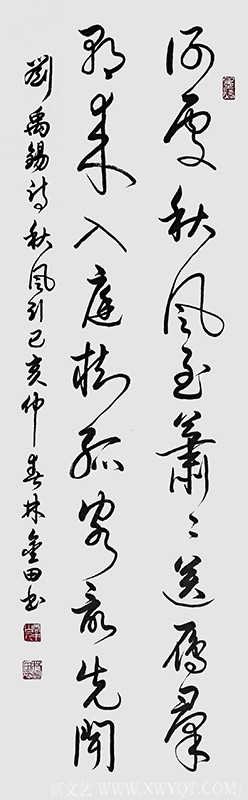 何處秋風至蕭〻送雁羣
朝來入庭樹孤客最先聞
劉禹錫詩秋風引己亥仲春林金田書
新文艺 WWW.XWYOT.COM